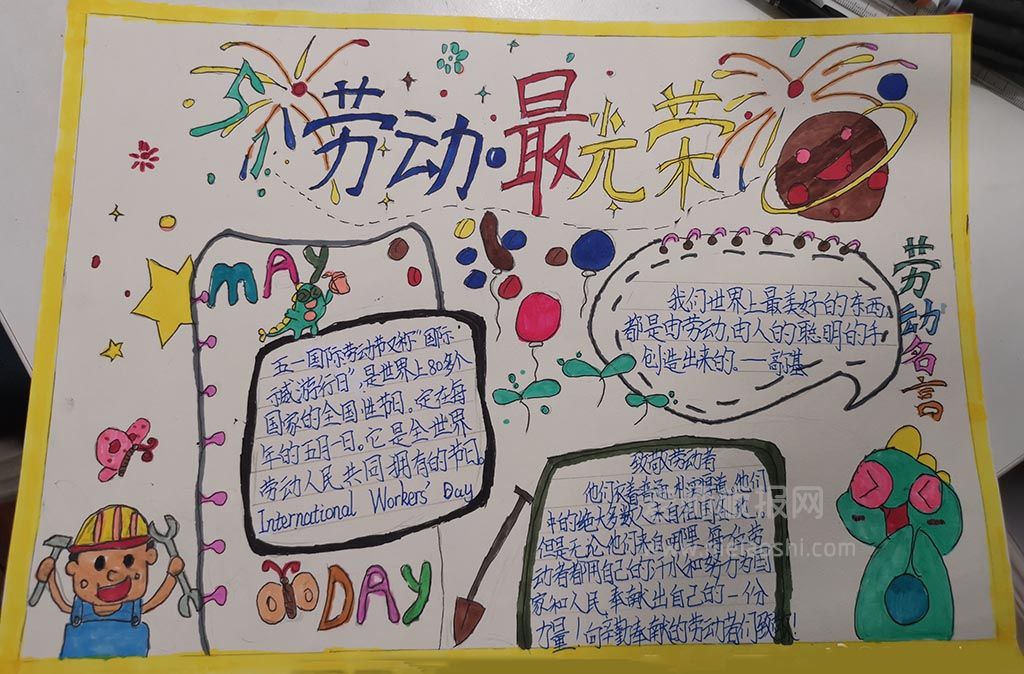 劳动最光荣
MAY
五一国际劳动节又称"国际
示威游行日",是世界上80多个
国家的全国性节日。定在每
年的五月一日。它是全世界
劳动人民共同拥有的节日。
International Workers' Day
DAY
我们世界上最美好的东西,
都是由劳动,由人的聪明的手
创造出来的。——
劳动名言
致敬劳动者
他们
中的绝大多数人来自
但是无论他们来自哪里,
动者都用自己的汗水和努力为国
家和人民奉献出自己的一份
力量!向辛勤奉献的劳动者们致